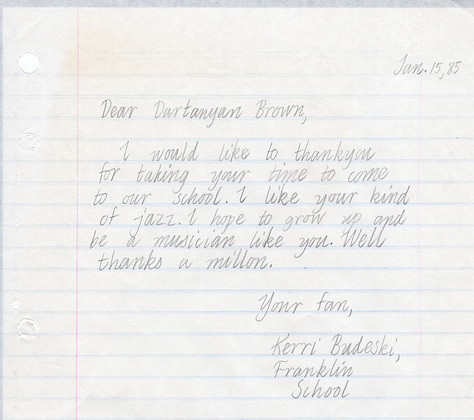 Jan. 15, 85
Dear Dartanyan Brown,
I would like to thankyou
for taking your time to come
to our school. I like your kind
of jazz. I hope to grow up and
be a musician like you. Well
thanks a millon.
Your fan,
Kerri Budeski,
Franklin
School